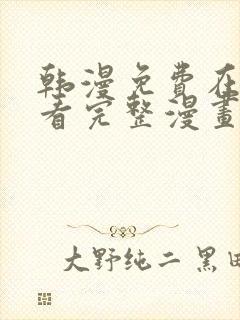 韩漫免費在
看完整漫畫
大野纯二 黑田